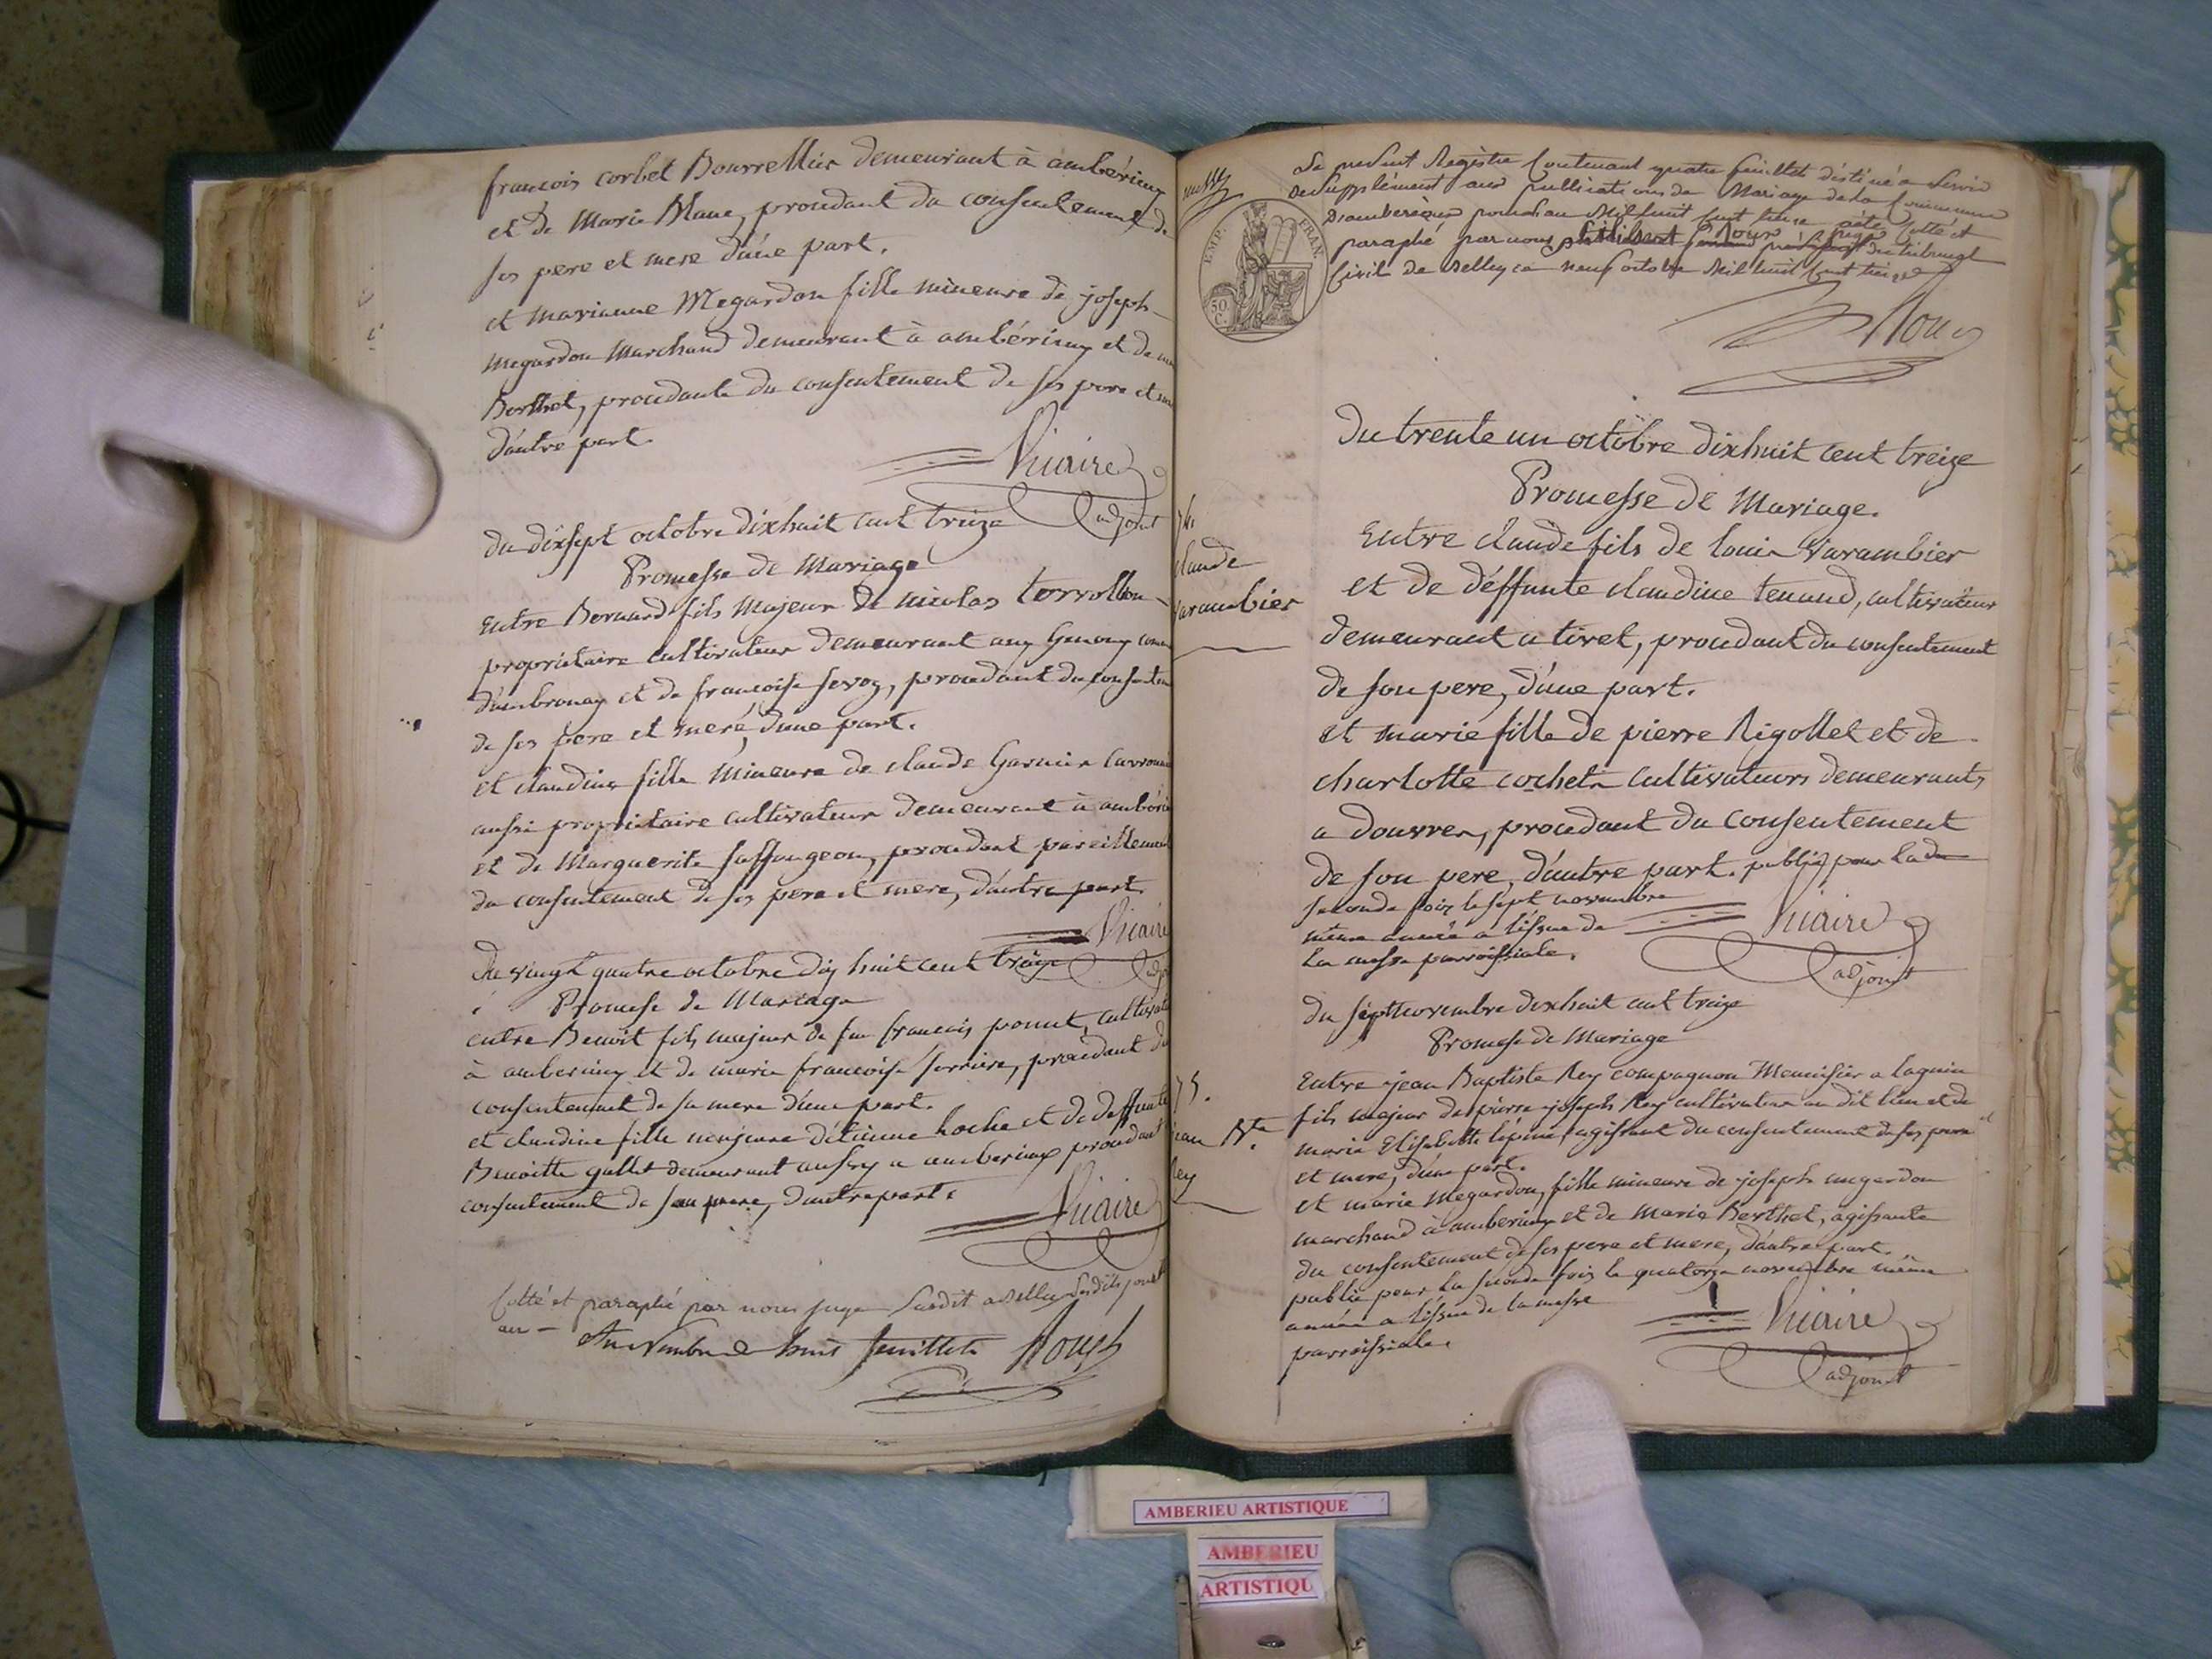 francois corbet Bourrellier demeurant à ambérieux
et de Marie Blanc, procedant du consentement de
ses pere et mere d'une part.
et marianne Megardon fille mineure de joseph
megardon Marchand demeurant à ambérieux et de
Berthet, procedante du consentement de ses pere et
d'autre part.
Vicaire
adjoint
du dixsept octobre dixhuit cent treize
Promesse de Mariage
Entre Bernard fils Majeur de nicolas terrollion
propriétaire cultivateur demeurant
d'ambronay et de francoise , procedant du
de ses pere et mere, d'une part.
et claudine fille Mineure de claude Garnier
aussi propriétaire cultivateur demeurant à
et de Marguerite , procedant pareillement
du consentement de ses pere et mere, d'autre part.
Vicaire
Du vingt quatre octobre dix huit cent treize
Promesse de Mariage
entre Benoit fils majeur de feu francois ponut,
à amberieux et de marie francoise ferriere, procedant
consentement de sa mere d'une part.
et claudine fille majeure d'étienne hoche et de deffunte
Benoitte gallet demeurant aussy a amberieux procedant
consentement de son pere, d'autre part.
Vicaire
Cotté et paraphé par nous juge susdit a Belley
au Nombre de huit feuillets Roux
Le present Registre Contenant quatre feuillets déstiné a servir
de supplément aux publications de Mariage de la Commune
D'amberieux pour l'an Mil huit Cent treize été Cotté et
paraphé par nous du tribunal
Civil de Belley ce neuf octobre Mil huit Cent treize
EMP. FRAN.
50.
C.
Roux
74.
claude
varambier
Du trente un octobre dixhuit cent treize
Promesse de Mariage.
Entre claude fils de louis Varambier
et de deffunte claudine tenand, cultivateur
demeurant a tiret, procedant du consentement
de son pere, d'une part.
et marie fille de pierre Rigollet et de
charlotte cochet cultivateurs demeurants
a douvres, procedant du consentement
de son pere, d'autre part. publié pour la
seconde fois le sept novembre
même année a l'issue de
la messe parroissiale.
Vicaire
adjoint
du sept novembre dixhuit cent treize
Promesse de Mariage
75.
jean Bte
Rey
Entre jean Baptiste Rey compagnon Menuisier a lagnieu
fils majeur de pierre joseph Rey cultivateur au dit lieu et de
marie Elisabette lépine, agissant du consentement de ses pere
et mere, d'une part.
et marie Megardon, fille mineure de joseph megardon
marchand à amberieux et de Marie Berthet, agissante
du consentement de ses pere et mere, d'autre part.
publié pour la seconde fois le quatorze novembre même
année a l'issue de la messe
parroissiale.
Vicaire
adjoint
AMBERIEU ARTISTIQUE
AMBERIEU
ARTISTIQU